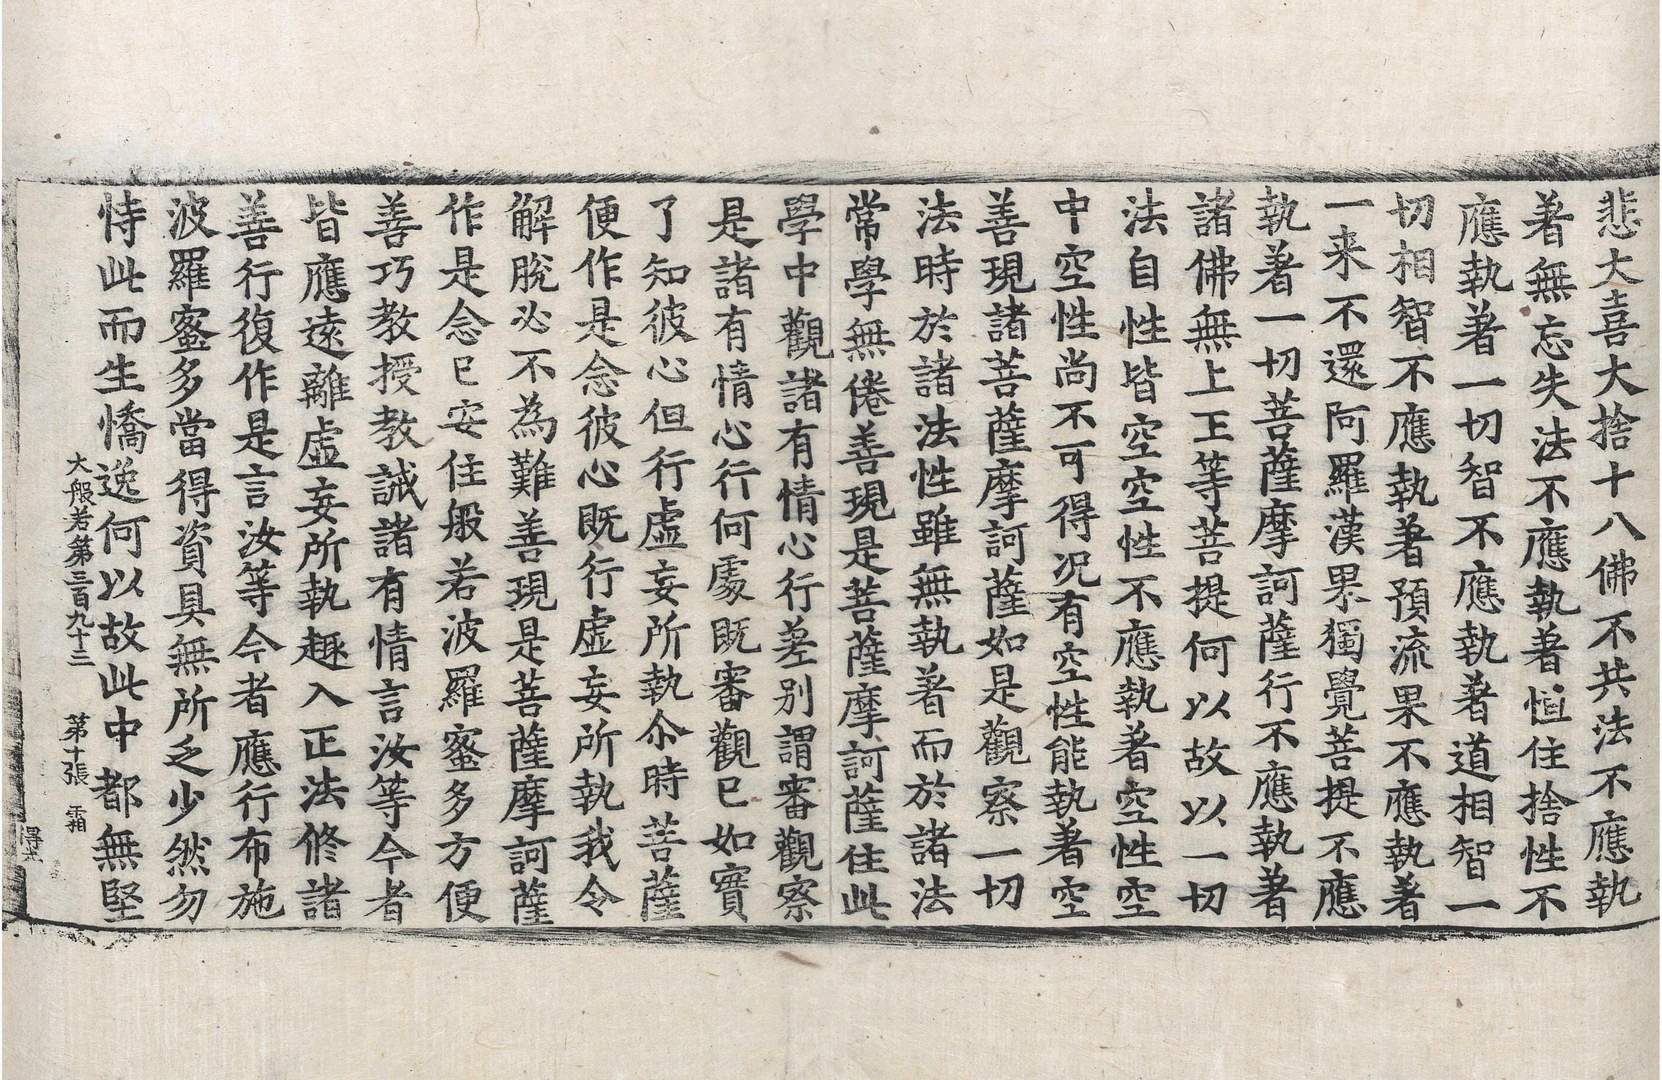 悲大喜大捨十八佛不共法不應執
著無忘失法不應執著恒住捨性不
應執著一切智不應執著道相智一
切相智不應執著預流果不應執著
一来不還阿羅漢果獨覺菩提不應
執著一切菩薩摩訶薩行不應執著
諸佛無上正等菩提何以故以一切
法自性皆空空性不應執著空性空
中空性尚不可得況有空性能執著空
善現諸菩薩摩訶薩如是觀察一切
法時於諸法性雖無執著而於諸法
常學無倦善現是菩薩摩訶薩住此
學中觀諸有情心行差別謂審觀察
是諸有情心行何處既審觀已如實
了知彼心但行虛妄所執尒時菩薩
便作是念彼心既行虛妄所執我令
解脫必不為難善現是菩薩摩訶薩
作是念已安住般若波羅蜜多方便
善巧教授教誡諸有情言汝等今者
皆應遠離虛妄所執趣入正法修諸
善行復作是言汝等今者應行布施
波羅蜜多當得資具無所乏少然勿
恃此而生憍逸何以故此中都無堅
大般若第三百九十三　第十張　霜
得才